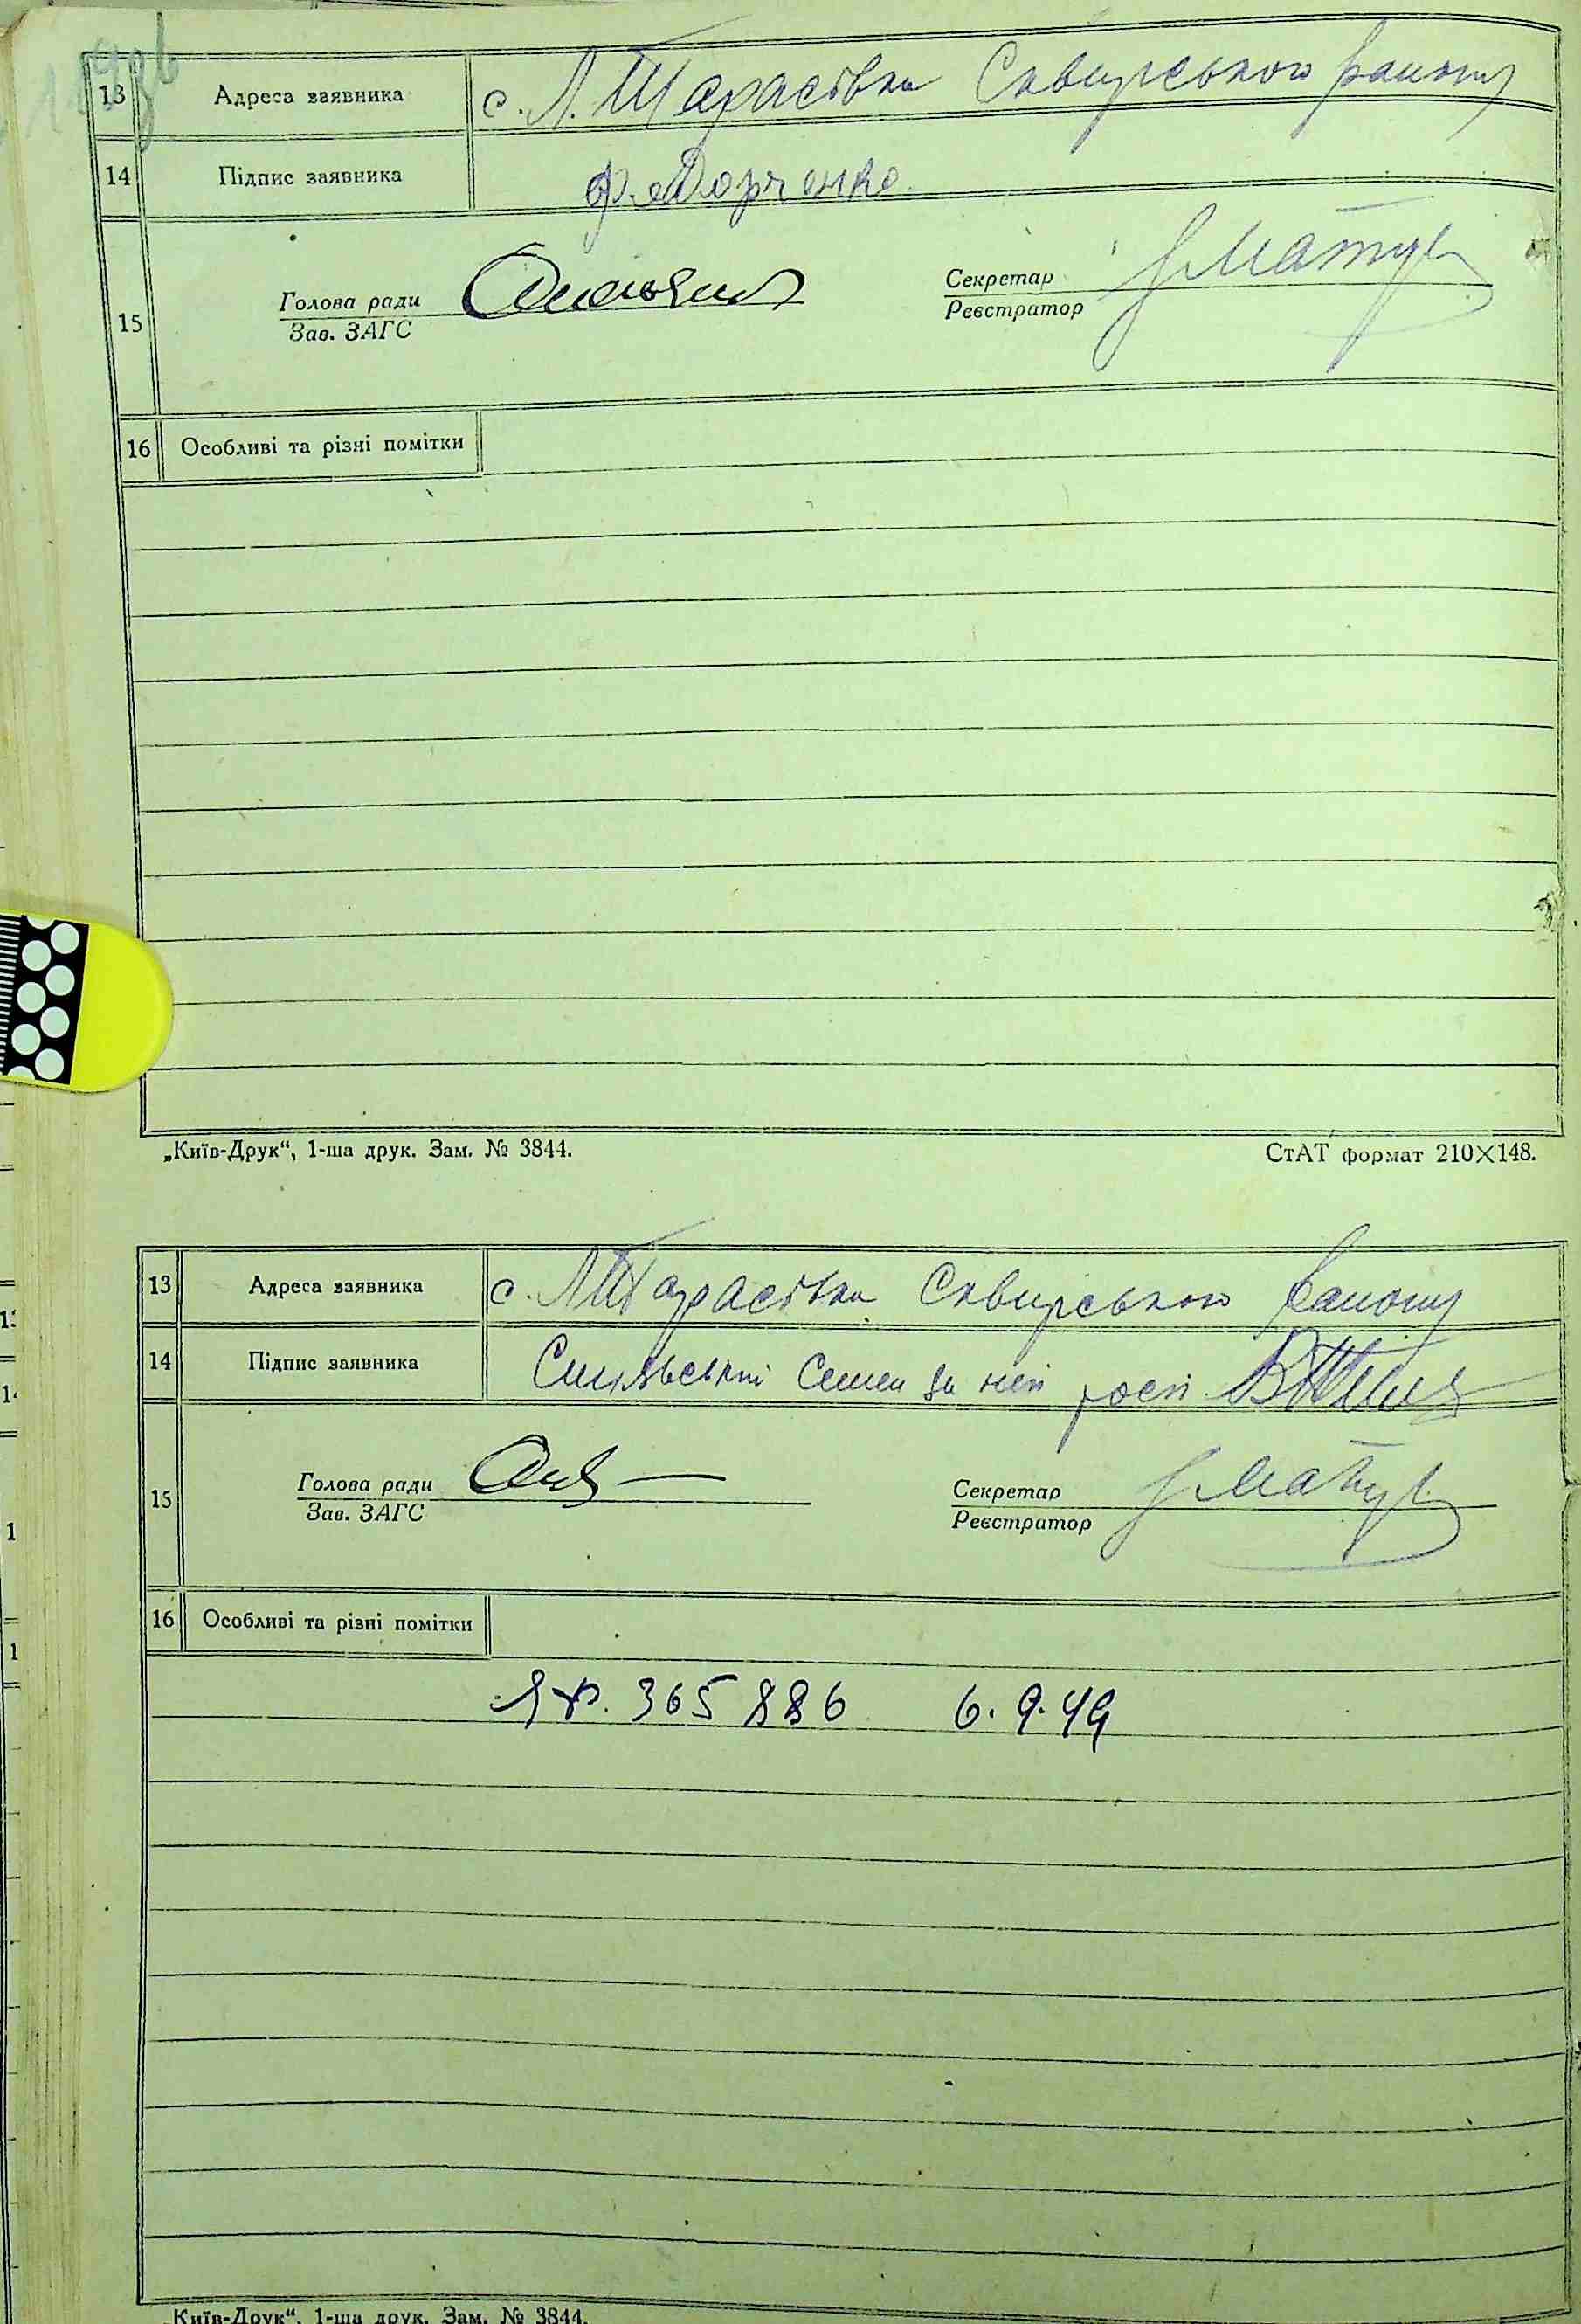 13 Адреса заявника с. Л. Тарасівка Сквирського району
14 Підпис заявника Ф. Дорченко
15 Голова ради Секретар
Зав. ЗАГС Реєстратор
16 Особливі та різні помітки
„Київ-Друк“, 1-ша друк. Зам. № 3844. СтАТ формат 210×148.
13 Адреса заявника с. Л. Тарасівка Сквирського району
14 Підпис заявника Семен за
15 Голова ради Секретар
Зав. ЗАГС Реєстратор
16 Особливі та різні помітки
365886 6.9.49
„Київ-Друк“, 1-ша друк. Зам. № 3844.